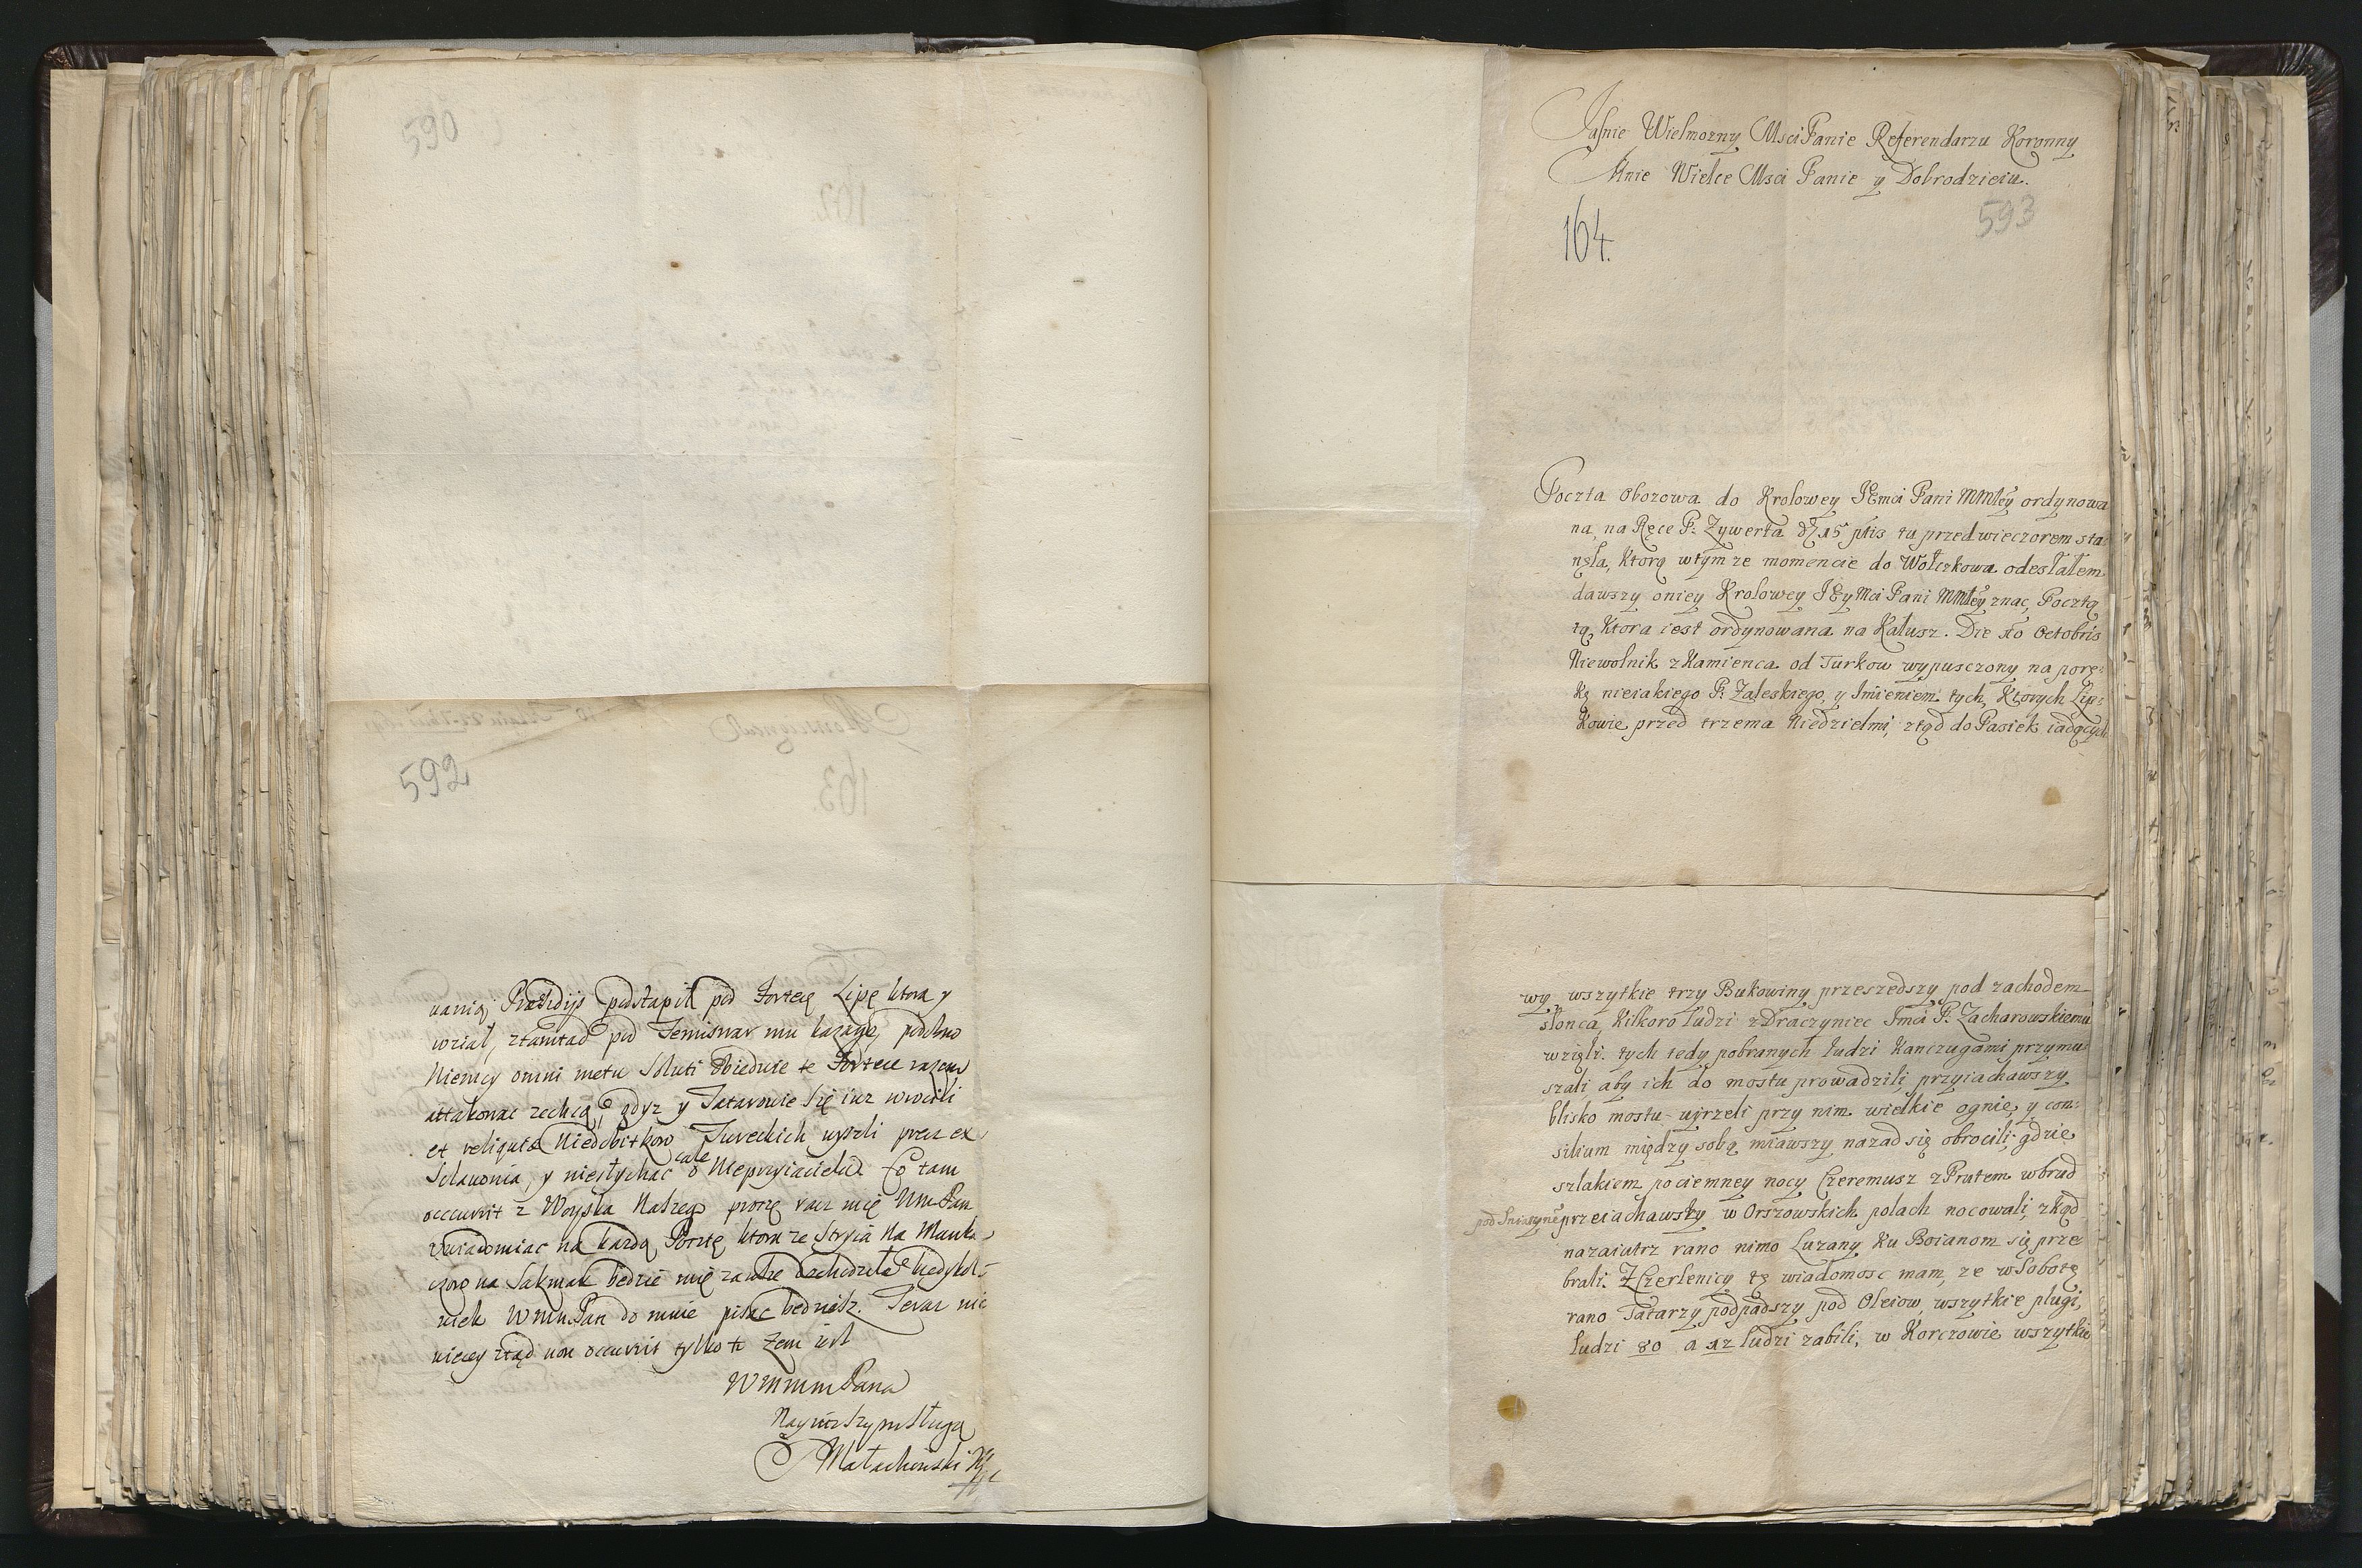 590
592
uanią, Præsidijs podstąpił pod Fortecę Lipę ktora y
wział, ztamtąd pod Temiswar mu kazano, podobno
Niemcy omni metu soluti obiedwie te Fortece razem
attakować zechcą, gdyz y Tatarowie się iuz wrocili
et reliquiæ Niedobitkow Tureckich wyszli precz ex
Sclavonia, y niesłychać cale o Nieprzyiacielu. Co tam
occurrit z Woyska Naszego proszę racz mię WmPan
uwiadomiac na kazdą Pocztę ktora ze Stryia na Munka-
czow na Sakmar będzie mię zawsze dochodziła kiedykol-
wiek WMMPan do mnie pisac będziesz. Teraz nic
więcey ztąd non occurrit tylko to zem iest
WMMMPana
Nayniszszym sługą
Małachowski
Jaśnie Wielmozny Msci Panie Referendarzu Koronny
Mnie Wielce Msci Panie y Dobrodzieiu.
593
164.
Poczta Obozowa do Krolowey JEmci Pani MMłey ordynowa
na, na Ręce P: Zywerta d 15 ptis tu przed wieczorem sta-
nęła, Ktorą wtym ze momencie do Wołczkowa odesłałem
dawszy oniey Krolowey JEy Mci Pani MMłey znac, Pocztą
tą, Ktora iest ordynowana na Kałusz. Die 10 Octobris
Niewolnik z Kamienca od Turkow wypusczony na porę-
kę nieiakiego P: Zaleskiego, y Imieniem tych, Ktorych Lip-
kowie przed trzema Niedzielmi, ztąd do Pasiek iadących
wy wszytkie trzy Bukowiny przeszedszy, pod zachodem
słonca, Kilkoro ludzi z Draczyniec Imci P: Zacharowskiemu
wzięli. tych tedy pobranych ludzi Kanczugami przymu
szali aby ich do mostu prowadzili, przyiachawszy
blisko mostu ujrzeli przy nim wielkie ognie, y con-
silium między sobą miawszy, nazad się obrocili; gdzie
szlakiem pociemney nocy Czeremusz z Prutem wbrud
pod Sniatyne przeiachawszy w Orszowskich polach nocowali, zkąd
nazaiutrz rano nimo Luzany ku Boianom się prze
brali. Z Czerlenicy tę wiadomosc mam, ze w Sobotę
rano Tatarzy podpadszy pod Oleiow, wszytkie pługi,
ludzi 80 a 12 ludzi zabili, w Korczowie wszytkie